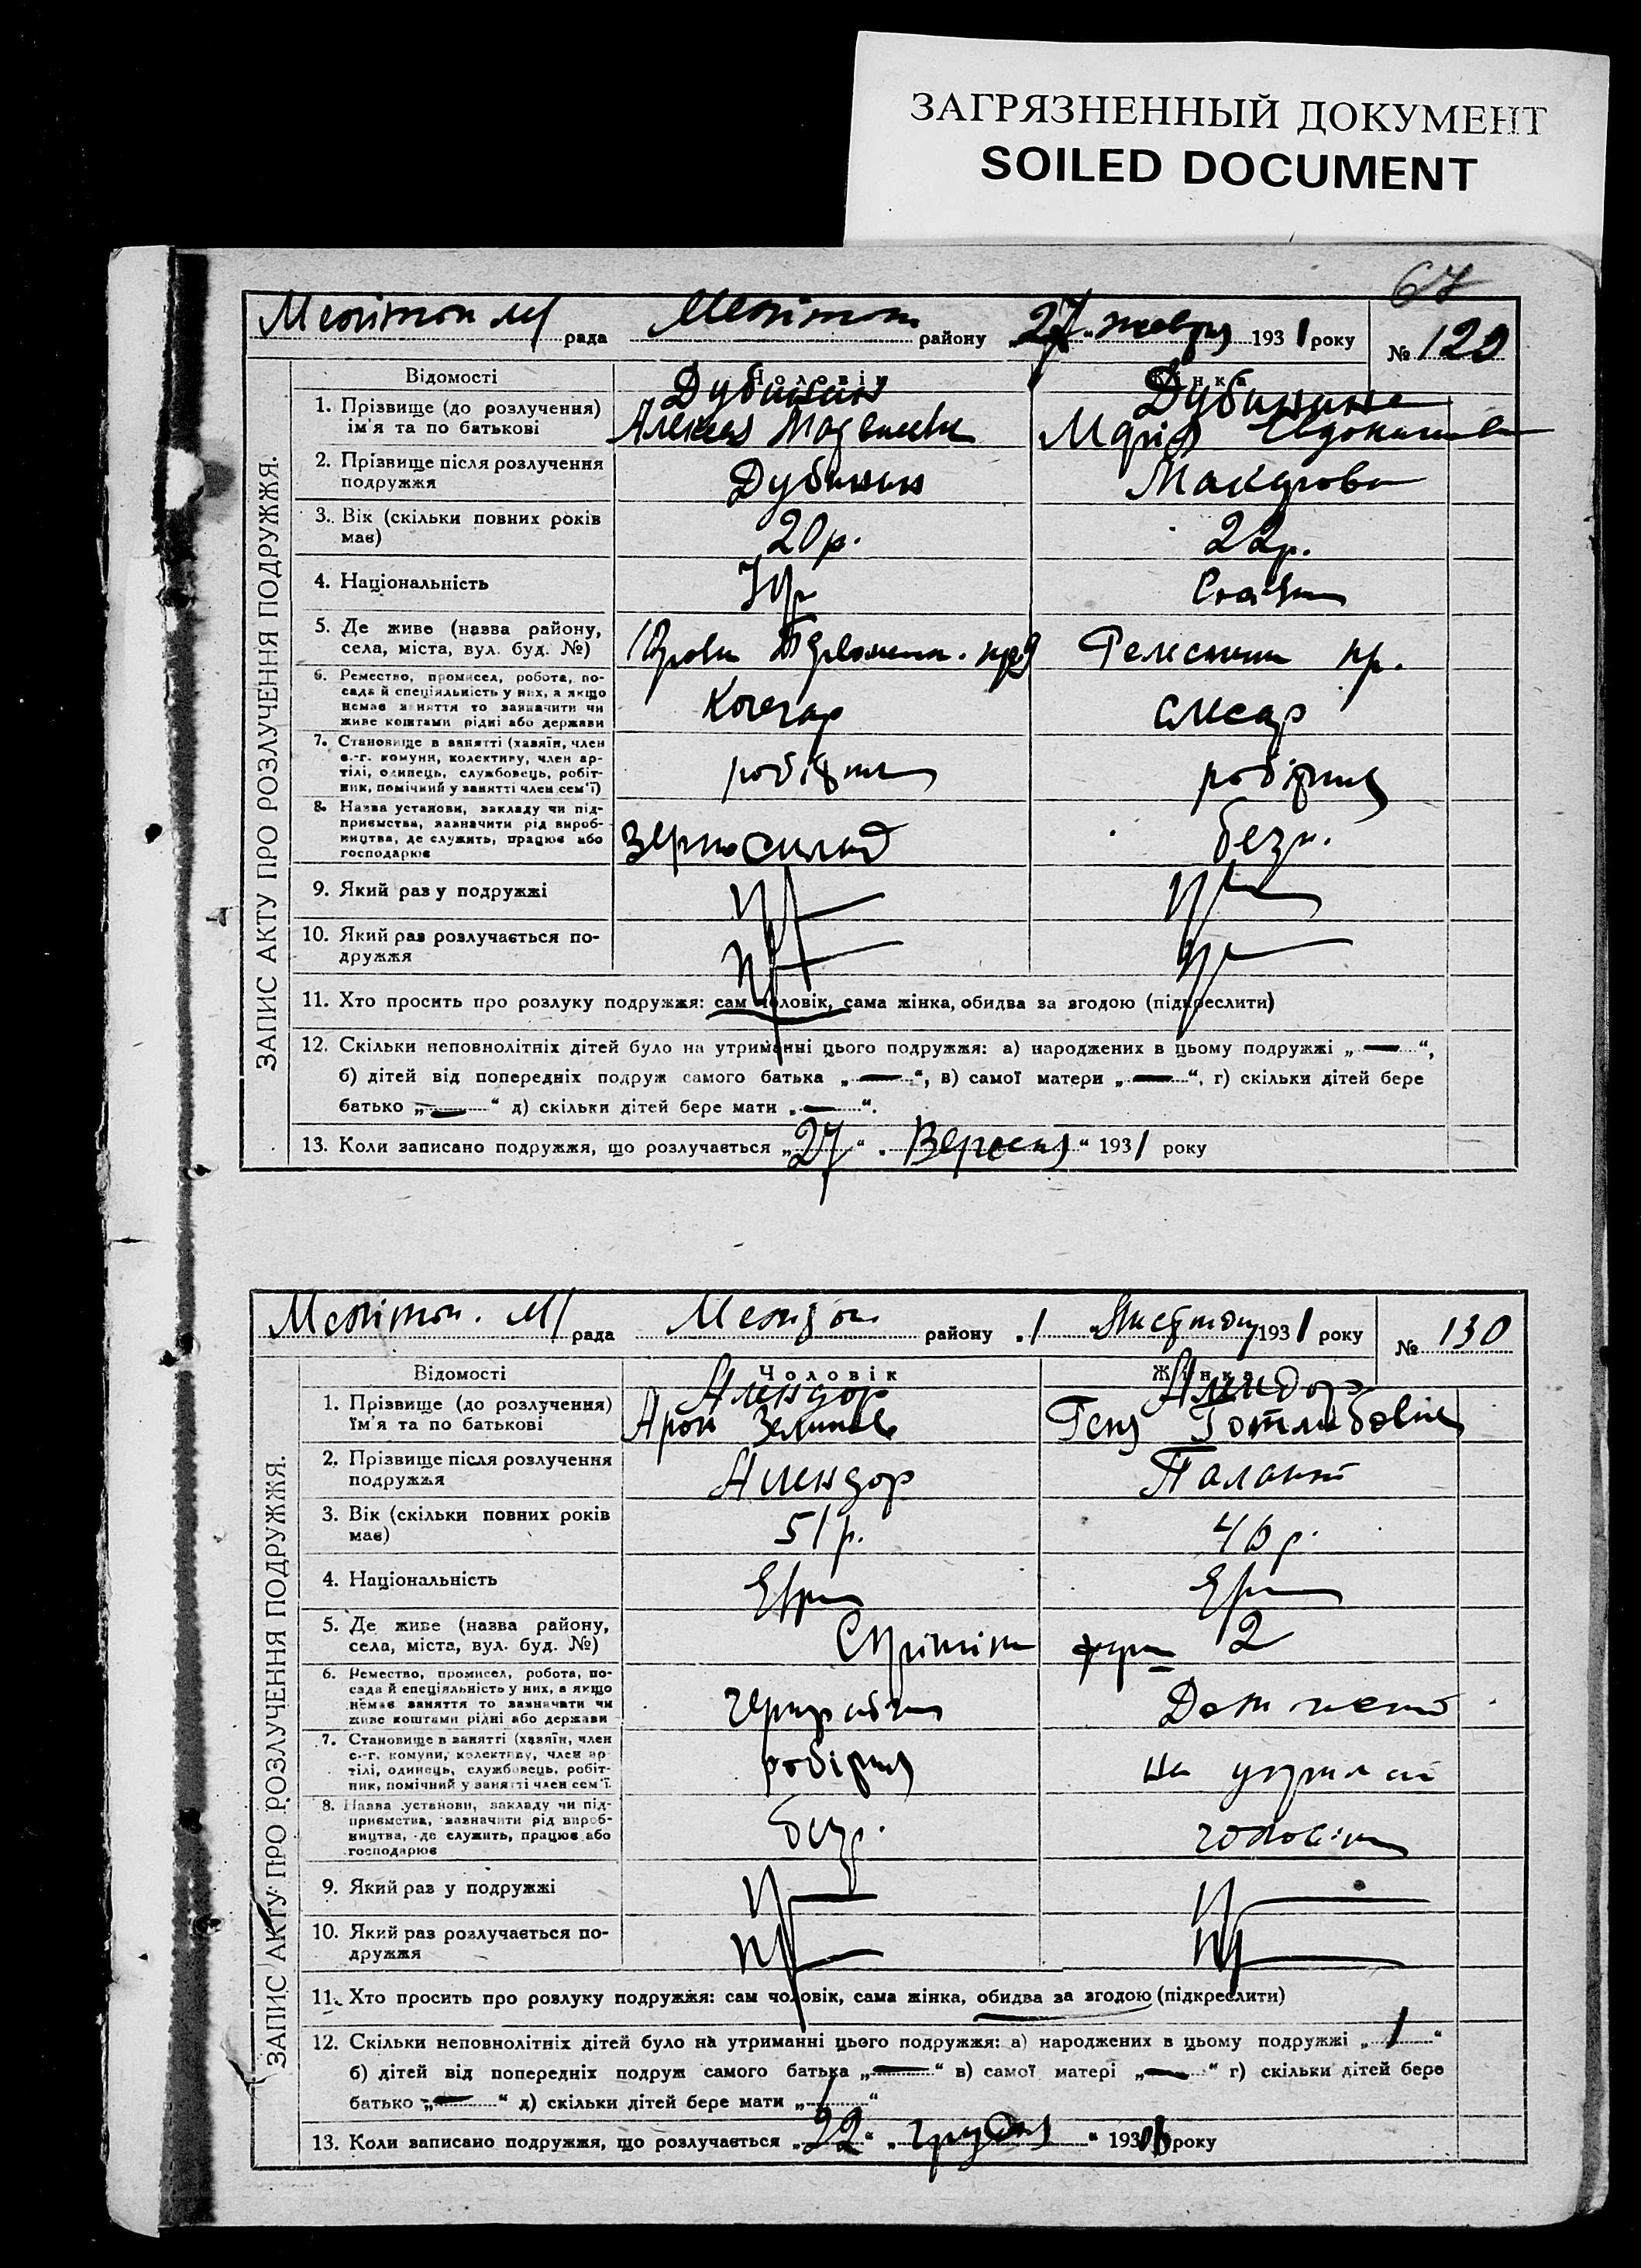 ЗАГРЯЗНЕННЫЙ ДОКУМЕНТ
SOILED DOCUMENT
67
рада району 27 жовтня 1931 року № 129
ЗАПИС АКТУ ПРО РОЗЛУЧЕННЯ ПОДРУЖЖЯ.
Відомості Чоловік Жінка
Дубинин Дубинина
1. Прізвище (до розлучення)
ім'я та по батькові Алексей Мария
2. Прізвище після розлучення
подружжя Дубинин Макарова
3. Вік (скільки повних років
має) 20 р. 22 р.
4. Національність
5. Де живе (назва району,
села, міста, вул. буд. №) пр.
6. Ремество, промисел, робота, по-
сада й спеціяльність у них, а якщо
немає заняття то зазначити чи
живе коштами рідні або держави
Кочегар слесар
7. Становище в занятті (хазяїн, член
с.-г. комуни, колективу, член ар-
тілі, одинець, службовець, робіт-
ник, помічний у занятті член сем'ї)
робітник робітниця
8. Назва установи, закладу чи під-
приємства, зазначити рід вироб-
ництва, де служить, працює або
господарює
безр.
9. Який раз у подружжі
10. Який раз розлучається по-
дружжя
11. Хто просить про розлуку подружжя: сам чоловік, сама жінка, обидва за згодою (підкреслити)
12. Скільки неповнолітніх дітей було на утриманні цього подружжя: а) народжених в цьому подружжі „ — “,
б) дітей від попередніх подруж самого батька „ — “, в) самої матери „ — “, г) скільки дітей бере
батько „ — “ д) скільки дітей бере мати „ — “.
13. Коли записано подружжя, що розлучається „ 27 “ „ Вересня “ 1931 року
рада району 1 Листопад 1931 року № 130
ЗАПИС АКТУ ПРО РОЗЛУЧЕННЯ ПОДРУЖЖЯ.
Відомості Чоловік Жінка
Алендор Алендор
1. Прізвище (до розлучення)
їм'я та по батькові Арон Геня Готлибовна
2. Прізвище після розлучення
подружжя Алендор Палант
3. Вік (скільки повних років
має) 51 р. 46 р.
4. Національність
5. Де живе (назва району,
села, міста, вул. буд. №) 2
6. Ремество, промисел, робота, по-
сада й спеціяльність у них, а якщо
немає заняття то зазначити чи
живе коштами рідні або держави
7. Становище в занятті (хазяїн, член
с.-г. комуни, колективу, член ар-
тілі, одинець, службовець, робіт-
ник, помічний у занятті член сем'ї.
робітник на
8. Назва установи, закладу чи під-
приємства, зазначити рід вироб-
ництва, де служить, працює або
господарює
безр.
9. Який раз у подружжі
10. Який раз розлучається по-
дружжя
11. Хто просить про розлуку подружжя: сам чоловік, сама жінка, обидва за згодою (підкреслити)
12. Скільки неповнолітніх дітей було на утриманні цього подружжя: а) народжених в цьому подружжі „ 1 “
б) дітей від попередніх подруж самого батька „ — “ в) самої матері „ — “ г) скільки дітей бере
батько „ — “ д) скільки дітей бере мати „ 1 “
13. Коли записано подружжя, що розлучається „ 22 “ „ грудня “ 193 року